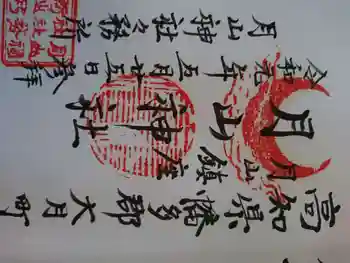 高知県幡多郡大月町
鎮座
月山神社
月山
令和元年五月廿五日
月山神社々務所